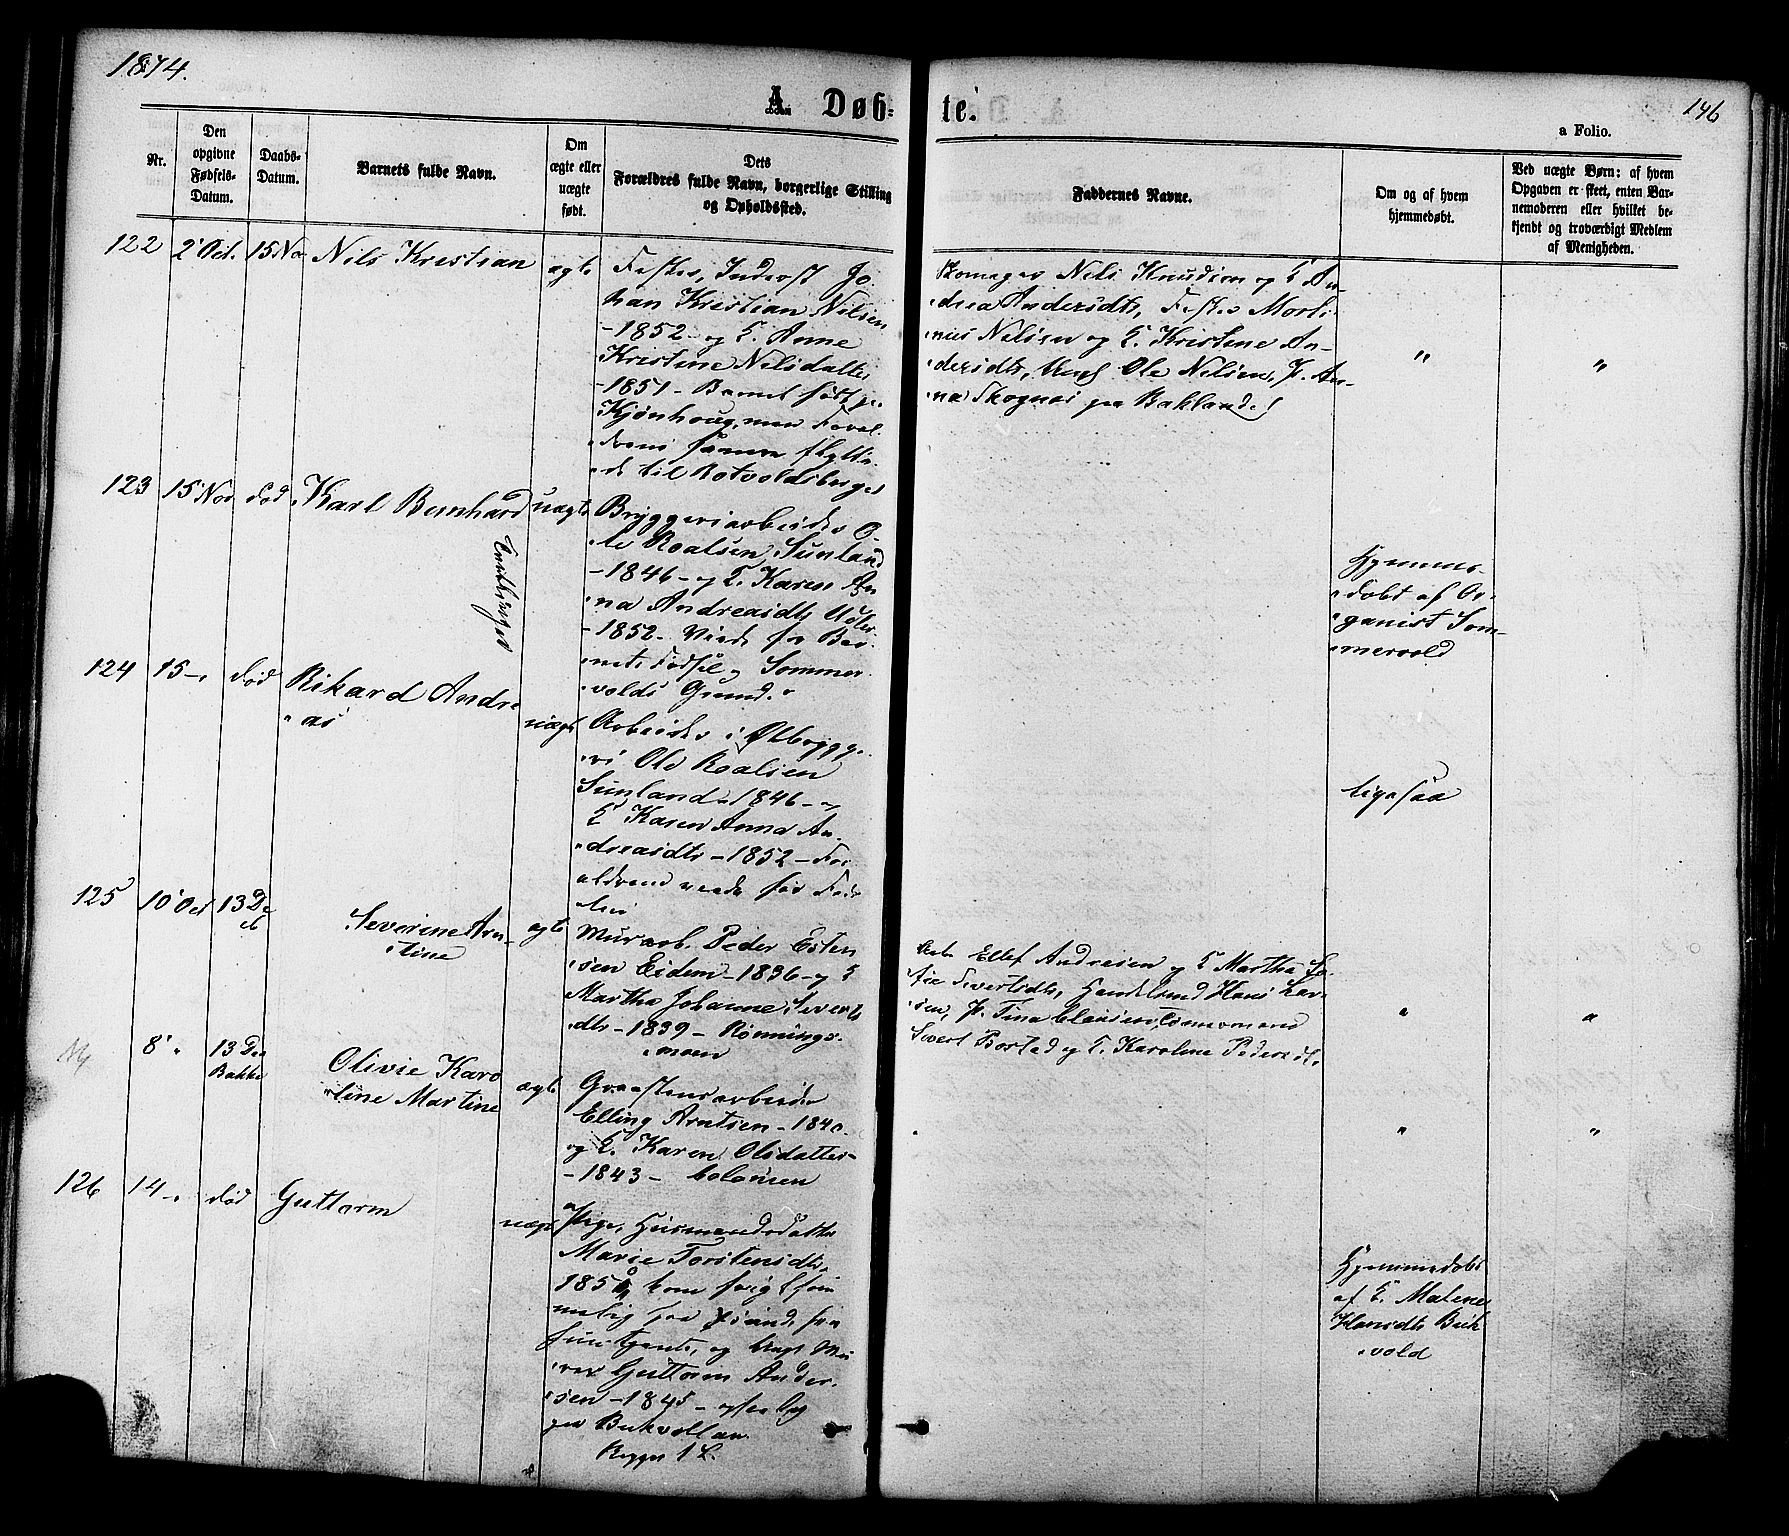 1874.
146
A Døb-
te.
a Folio.
Nr.
Den
opgivne
Fødsels-
Datum.
Daabs-
Datum.
Barnets fulde Navn.
Om
ægte eller
uægte
født.
Dets
Forældres fulde Navn, borgerlige Stilling
og Opholdssted.
Faddernes Navne.
Om og af hvem
hjemmedøbt.
Ved uægte Børn: af hvem
Opgaven er skeet, enten Bar-
nemoderen eller hvilket be-
kjendt og troværdigt Medlem
af Menigheden.
122
2 Oct.
15 Nov
Nils Kristian
ægte
Inderst Jo
han Kristian Nilsen
-1852- og E. Anne
Kristine Nilsdatter
-1851- Barnet født paa
til Rotvoldsberget
Skomager Nils Knudsen og E An-
drea Andersdtr, Morti
nus Nilsen og E. Kristine An-
dersdtr, Ungk Ole Nilsen, P. An-
na Skognæs paa Baklandet
"
"
123
15 Nov
død
Karl Bernhard
Tvillinger
uægte
Bryggeriarbeider O-
le Roalsen Sunland
-1846- og E. Karen An
na Andreasdtr
-1852-
Fødsel Sommer
volds Grund.
Hjemme-
døbt af Or-
ganist Som
mervold
124
15 -
død
Rikard Andre
as
uægte
Arbeider i Ølbrygge
ri Ole Roalsen
Sunland 1846 - og
E Karen Anna An-
dreasdtr - 1852 -
ligesaa
125
10 Oct
13 De
c
Severine Arn-
tine
ægte
Murarb. Peder Esten
sen Eidem - 1836 - og E
Martha Johanne Sivert
dtr - 1839 - Rønnings-
moen
Arb. Ellef Andresen og E Martha So
fie Sivertsdtr, Handelsmd Hans Lar
sen, P. Tina Clausen, Tømmermand
Sivert Bostad og E. Karoline Pedersdtr.
"
"
8 "
13 Dec
Bakke
Olivie Karo
line Martine
ægte
Graastensarbeider
Elling Arntsen - 1840
og E. Karen Olsdatter
- 1843 -
"
"
126
14 -
død
Guttorm
uægte
Pige, Husmandsdatter
Marie Torstensdtr,
rer Guttorm Ander
sen - 1845 -
paa Bekvollan.
Begges 1 L.
Hjemmedøbt
af E. Malene
Hansdtr Bek
vold